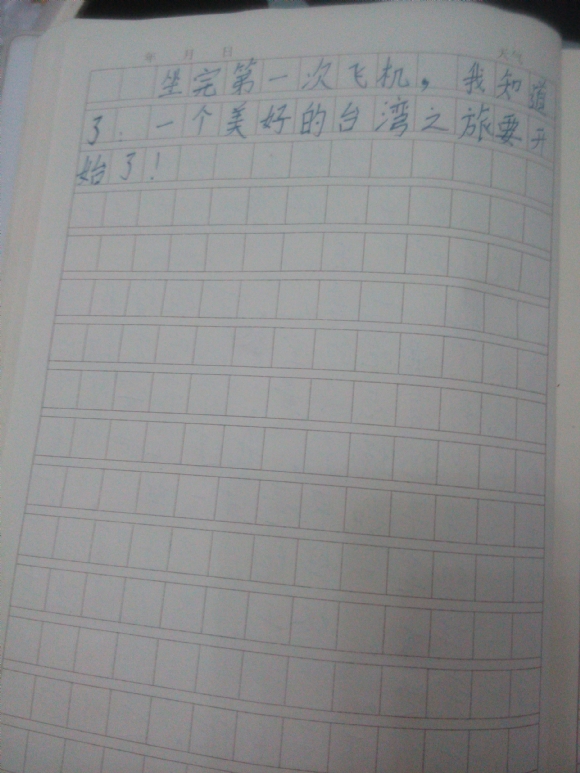 年 月 日 天气
坐完第一次飞机，我知道
了：一个美好的台湾之旅要开
始了！